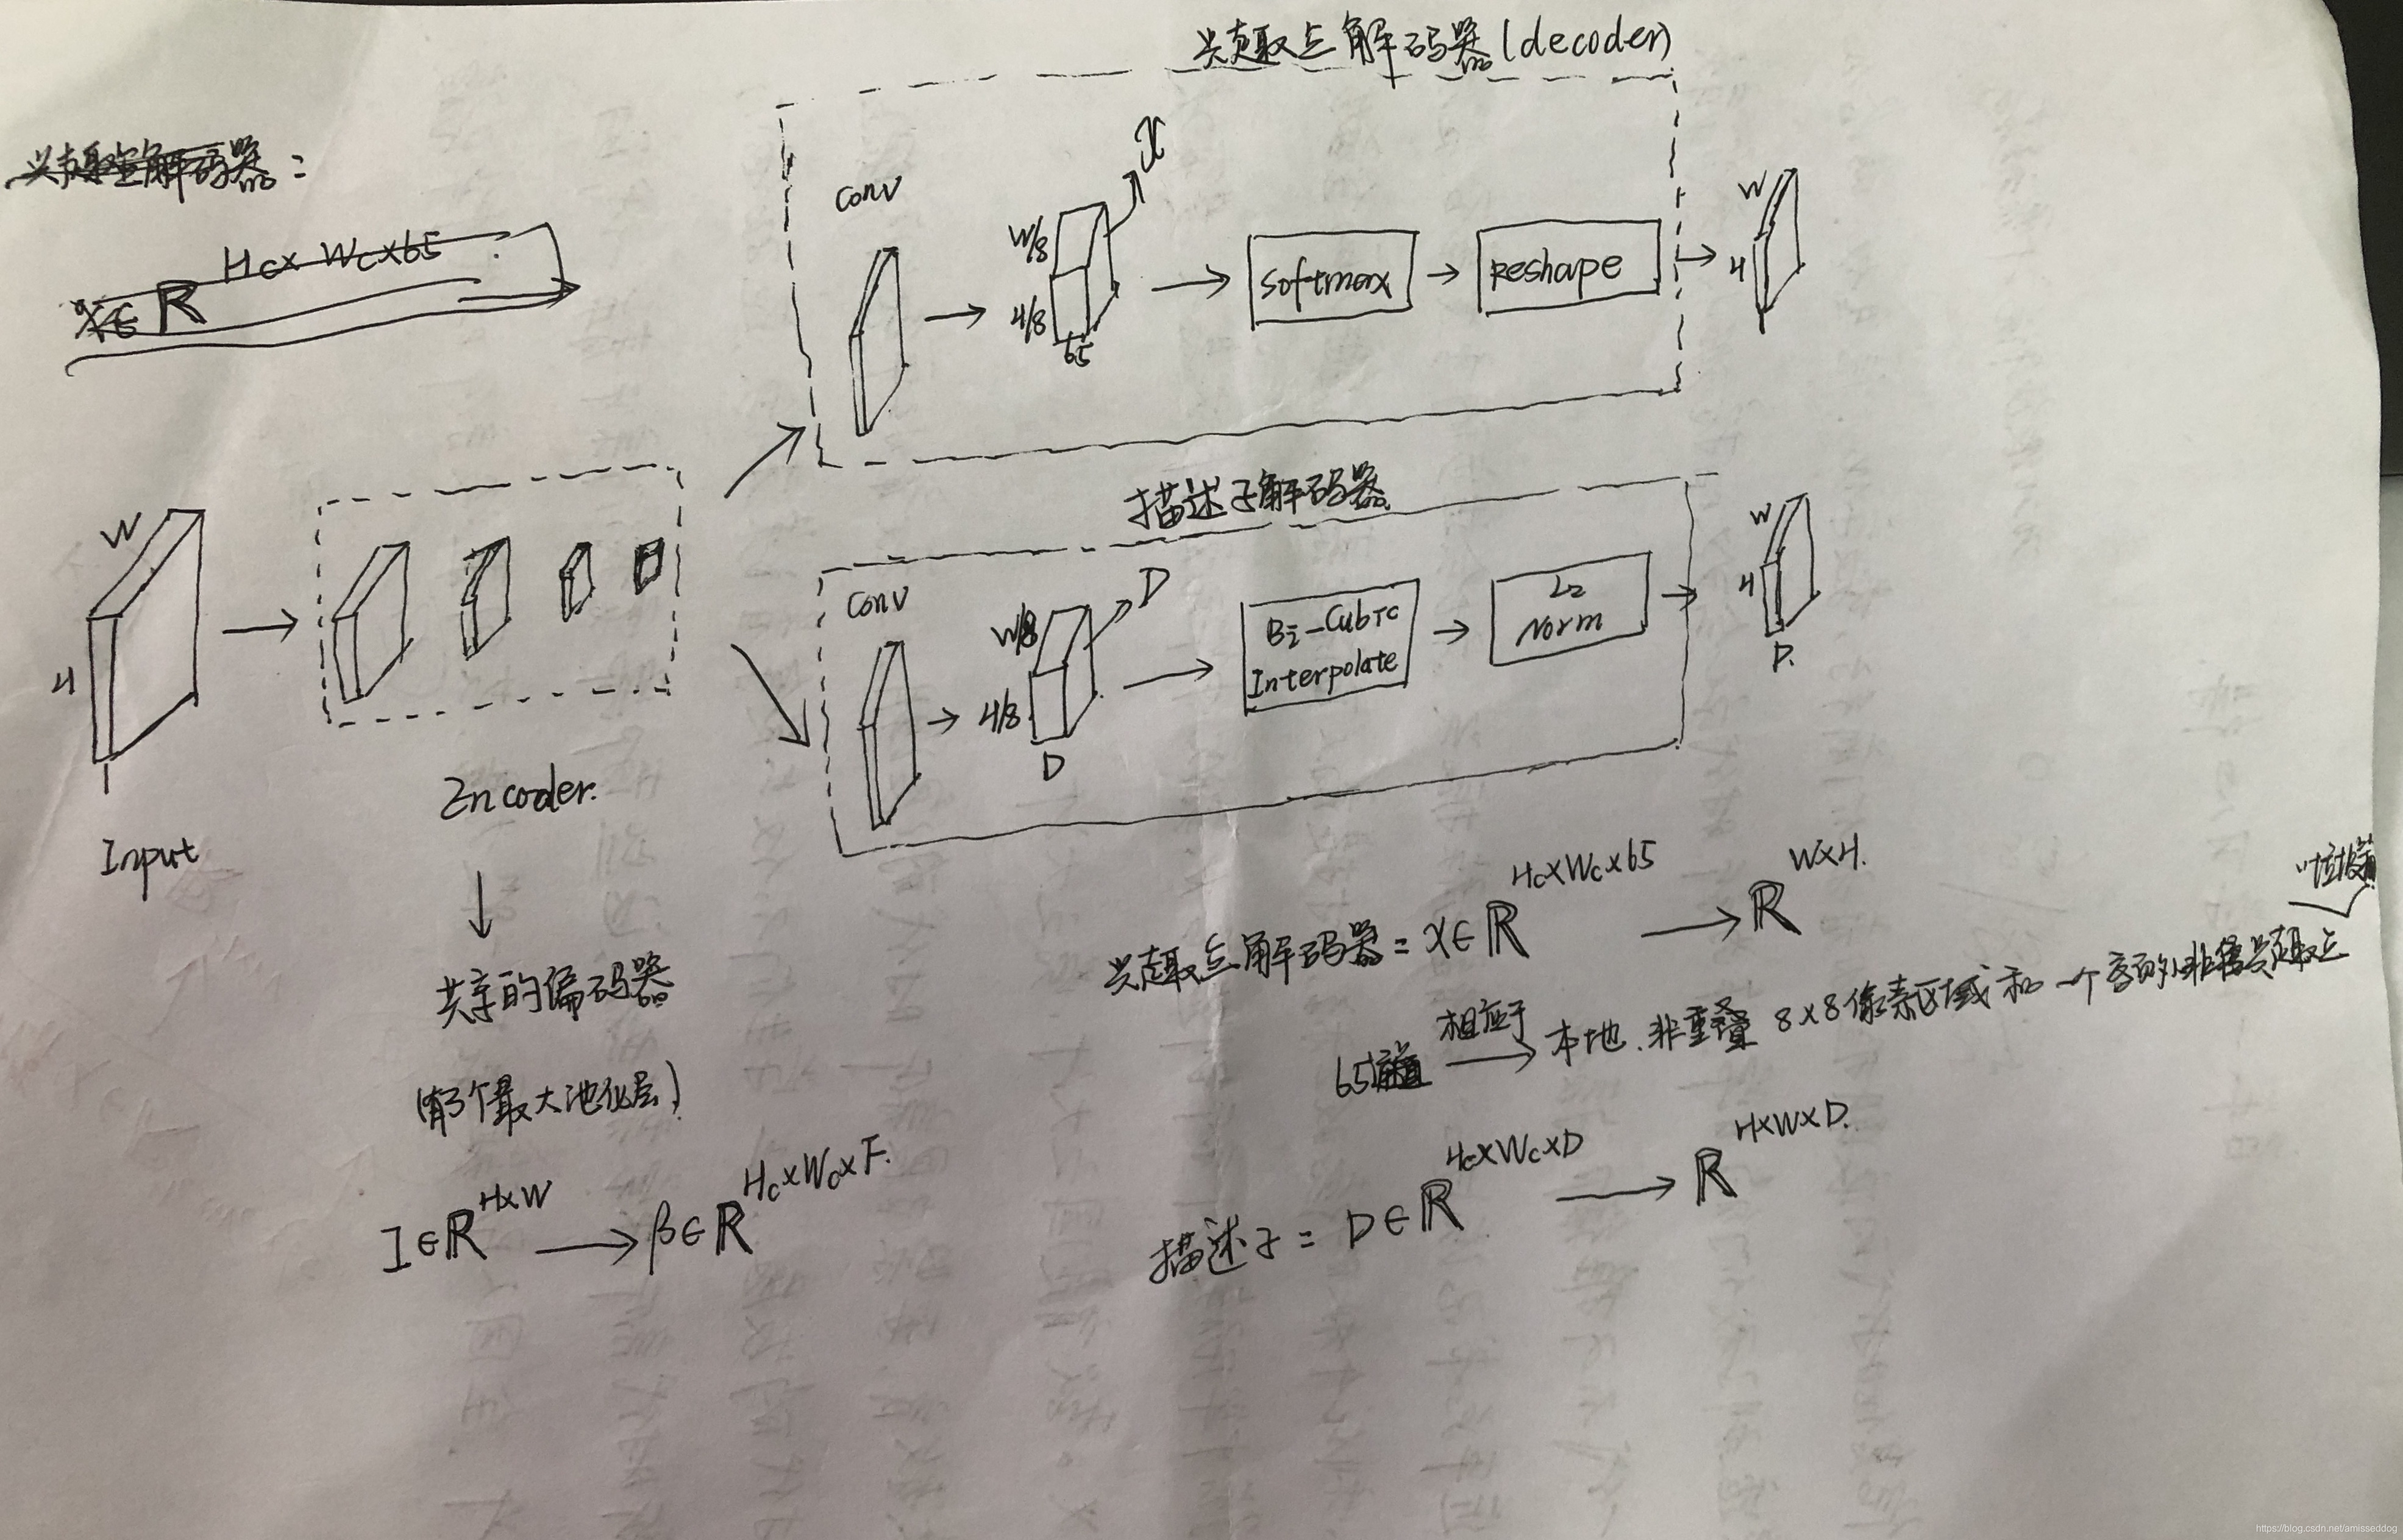 兴趣点解码器(decoder)
兴趣点解码器：
X∈ℝ^{Hc×Wc×65}
Conv
W/8
H/8
65
X
Softmax
Reshape
W
H
描述子解码器
W
H
1
Input
Encoder.
Conv
W/8
H/8
D
D
Bi-Cubic
Interpolate
L2
Norm
W
H
D.
共享的编码器
(有3个最大池化层)
I∈ℝ^{H×W} → β∈ℝ^{Hc×Wc×F}.
兴趣点解码器: X∈ℝ^{Hc×Wc×65} → ℝ^{W×H}.
垃圾箱
65 相应于 → 本地、非重叠 8×8像素区域和一个 兴趣点
描述子: D∈ℝ^{Hc×Wc×D} → ℝ^{H×W×D}.
https://blog.csdn.net/amisseddog